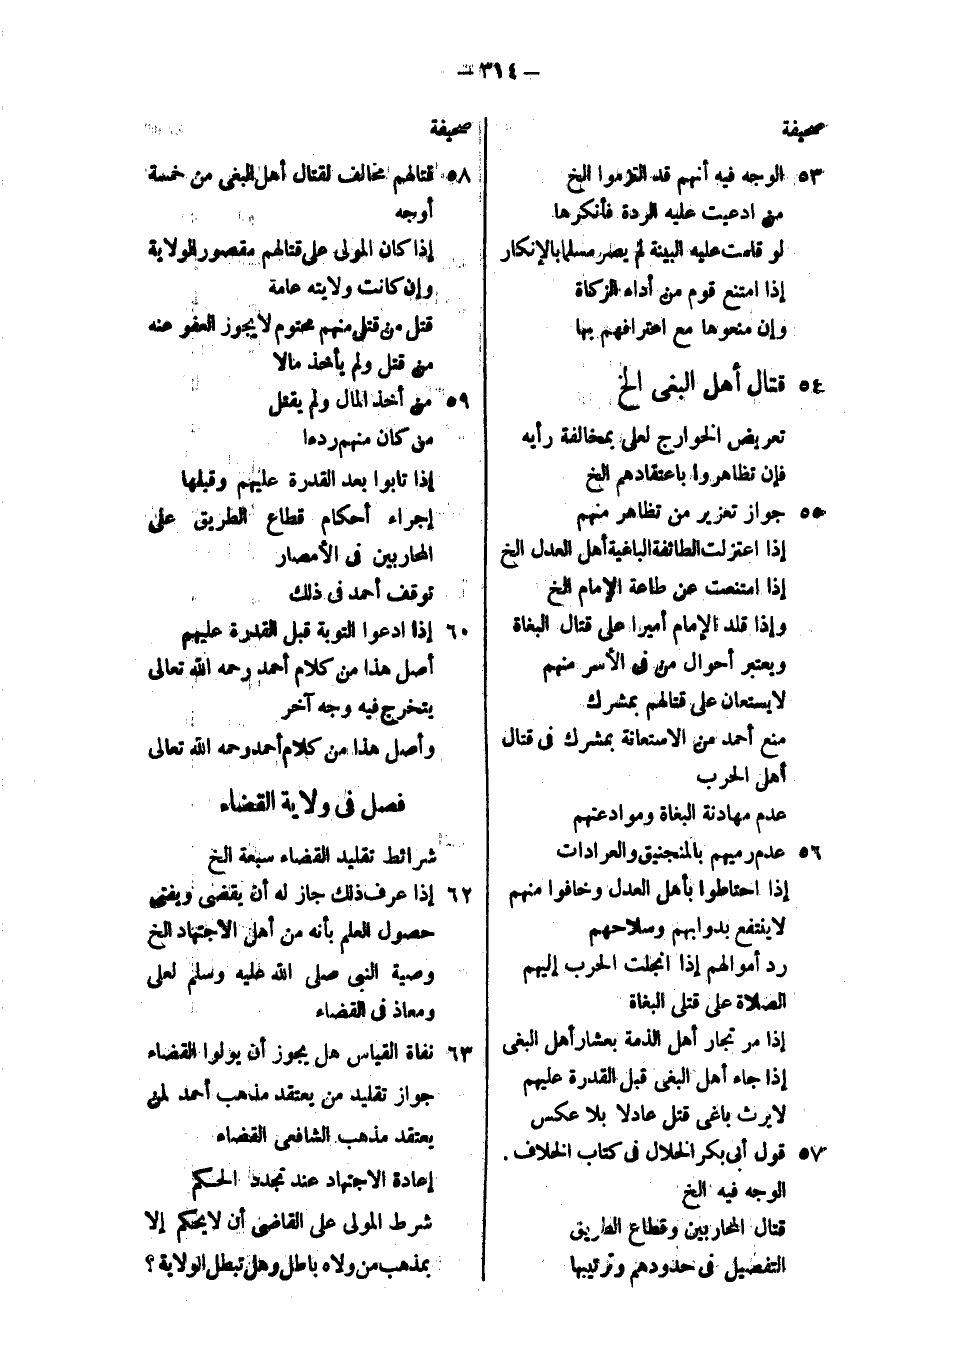 — ٣١٤ —
صحيفة
٥٣ الوجه فيه أنهم قد التزموا الخ
من ادعيت عليه الردة فأنكرها
لو قامت عليه البينة لم يصر مسلما بالإنكار
إذا امتنع قوم من أداء الزكاة
وإن منعوها مع اعترافهم بها
٥٤ قتال أهل البغى الخ
تعريض الخوارج لعلى بمخالفة رأيه
فإن تظاهروا باعتقادهم الخ
٥٥ جواز تعزير من تظاهر منهم
إذا اعتزلت الطائفة الباغية أهل العدل الخ
إذا امتنعت عن طاعة الإمام الخ
وإذا قلد الإمام أميرا على قتال البغاة
ويعتبر أحوال من فى الأسر منهم
لا يستعان على قتالهم بمشرك
منع أحمد من الاستعانة بمشرك فى قتال
أهل الحرب
عدم مهادنة البغاة وموادعتهم
٥٦ عدم رميهم بالمنجنيق والعرادات
إذا احتاطوا بأهل العدل وخافوا منهم
لا ينتفع بدوابهم وسلاحهم
رد أموالهم إذا انجلت الحرب إليهم
الصلاة على قتلى البغاة
إذا مر تجار أهل الذمة بعشار أهل البغى
إذا جاء أهل البغى قبل القدرة عليهم
لا يرث باغى قتل عادلا بلا عكس
٥٧ قول أبى بكر الخلال فى كتاب الخلاف .
الوجه فيه الخ
قتال المحاربين وقطاع الطريق
التفصيل فى حدودهم وترتيبها
صحيفة
٥٨ قتالهم مخالف لقتال أهل البغى من خمسة
أوجه
إذا كان المولى على قتالهم مقصور الولاية
وإن كانت ولايته عامة
قتل من قتل منهم محتوم لا يجوز العفو عنه
من قتل ولم يأخذ مالا
٥٩ من أخذ المال ولم يقتل
من كان منهم ردءا
إذا تابوا بعد القدرة عليهم وقبلها
إجراء أحكام قطاع الطريق على
المحاربين فى الأمصار
توقف أحمد فى ذلك
٦٠ إذا ادعوا التوبة قبل القدرة عليهم
أصل هذا من كلام أحمد رحمه الله تعالى
يتخرج فيه وجه آخر
وأصل هذا من كلام أحمد رحمه الله تعالى
فصل فى ولاية القضاء
شرائط تقليد القضاء سبعة الخ
٦٢ إذا عرف ذلك جاز له أن يقضى ويفتى
حصول العلم بأنه من أهل الاجتهاد الخ
وصية النبى صلى الله عليه وسلم لعلى
ومعاذ فى القضاء
٦٣ نفاة القياس هل يجوز أن يولوا القضاء
جواز تقليد من يعتقد مذهب أحمد لمن
يعتقد مذهب الشافعى القضاء
إعادة الاجتهاد عند تجدد الحكم
شرط المولى على القاضى أن لا يحكم إلا
بمذهب من ولاه باطل وهل تبطل الولاية ؟